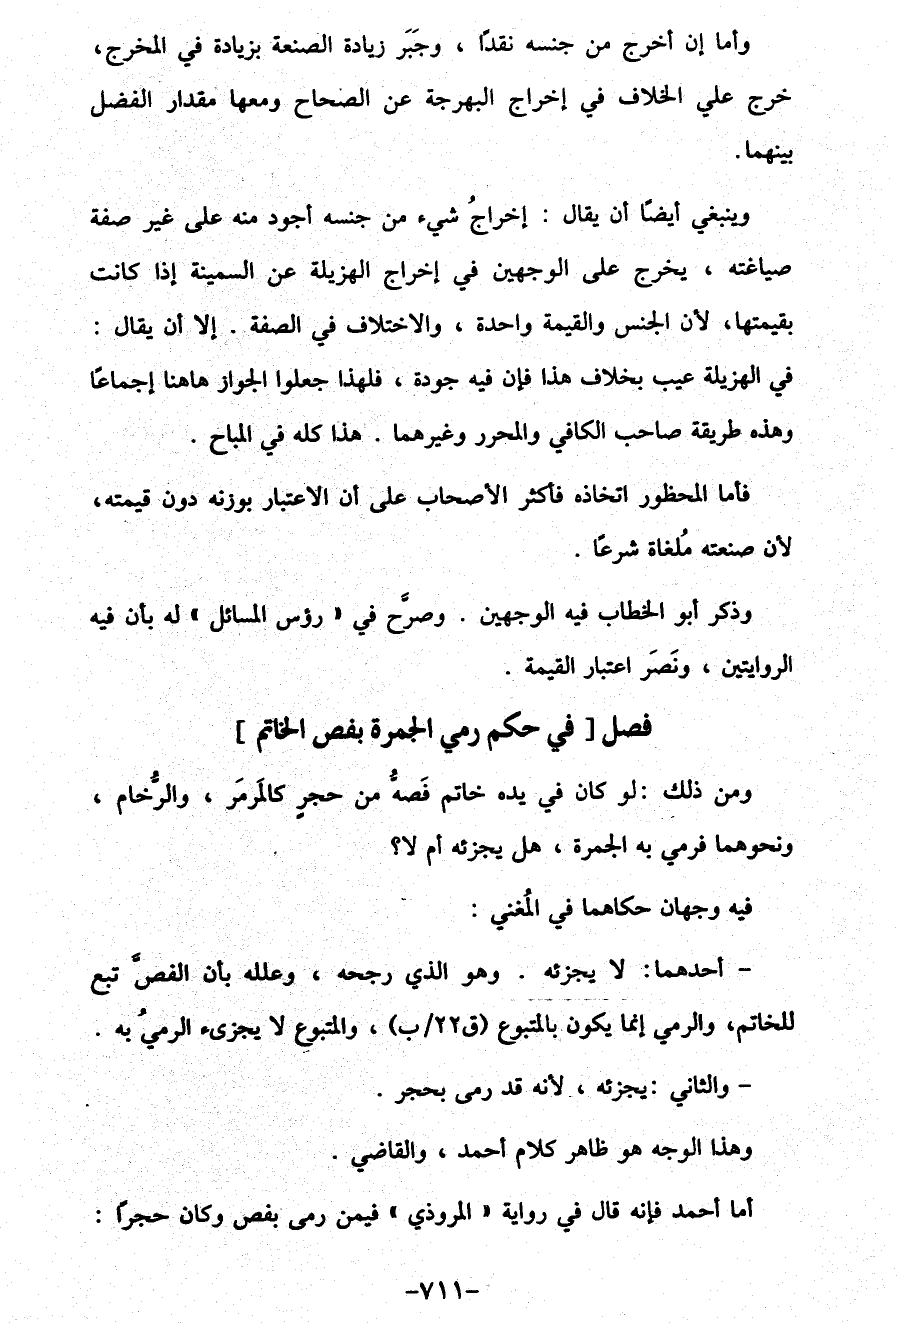 وأما إن أخرج من جنسه نقدًا ، وجَبَر زيادة الصنعة بزيادة في المخرج،
خرج علي الخلاف في إخراج البهرجة عن الصحاح ومعها مقدار الفضل
بينهما.
وينبغي أيضًا أن يقال : إخراجُ شيء من جنسه أجود منه على غير صفة
صياغته ، يخرج على الوجهين في إخراج الهزيلة عن السمينة إذا كانت
بقيمتها، لأن الجنس والقيمة واحدة ، والاختلاف في الصفة . إلا أن يقال :
في الهزيلة عيب بخلاف هذا فإن فيه جودة ، فلهذا جعلوا الجواز هاهنا إجماعًا
وهذه طريقة صاحب الكافي والمحرر وغيرهما . هذا كله في المباح .
فأما المحظور اتخاذه فأكثر الأصحاب على أن الاعتبار بوزنه دون قيمته،
لأن صنعته مُلغاة شرعًا .
وذكر أبو الخطاب فيه الوجهين . وصرَّح في « رؤس المسائل » له بأن فيه
الروايتين ، ونَصَر اعتبار القيمة .
فصل [ في حكم رمي الجمرة بفص الخاتم ]
ومن ذلك :لو كان في يده خاتم فَصهُّ من حجرٍ كالمَرمَر ، والرُّخام ،
ونحوهما فرمي به الجمرة ، هل يجزئه أم لا؟
فيه وجهان حكاهما في المُغني :
– أحدهما: لا يجزئه . وهو الذي رجحه ، وعلله بأن الفصَّ تبع
للخاتم، والرمي إنما يكون بالمتبوع (ق٢٢/ب) ، والمتبوع لا يجزىء الرميُ به .
– والثاني :يجزئه ، لأنه قد رمى بحجر .
وهذا الوجه هو ظاهر كلام أحمد ، والقاضي .
أما أحمد فإنه قال في رواية « المروذي » فيمن رمى بفص وكان حجرًا :
–٧١١–